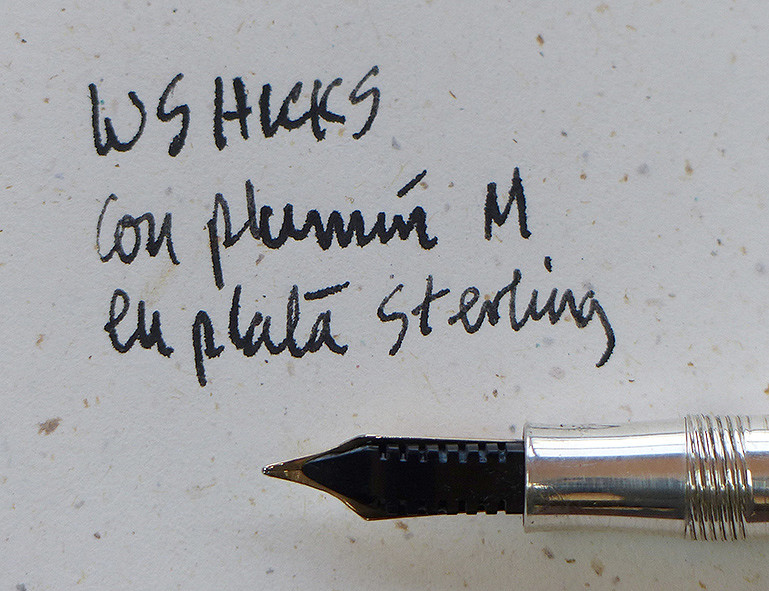 WS HICKS
con plumín M
en plata Sterling